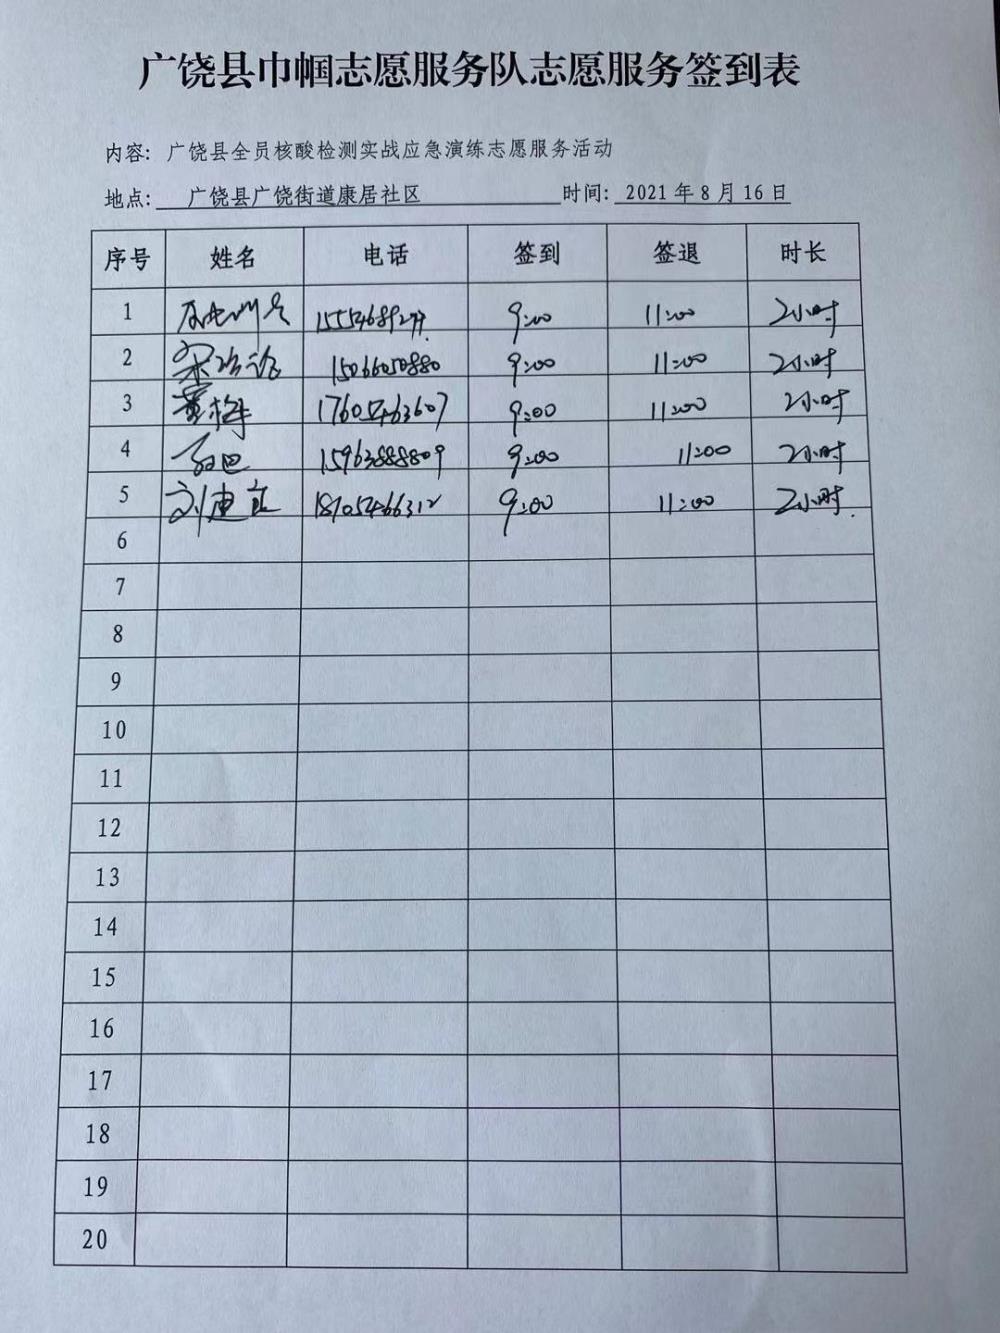 广饶县巾帼志愿服务队志愿服务签到表
内容: 广饶县全员核酸检测实战应急演练志愿服务活动
地点: 广饶县广饶街道康居社区 时间: 2021 年 8 月 16 日
序号 姓名 电话 签到 签退 时长
1 9:00 11:00 2小时
2 15066050880 9:00 11:00 2小时
3 董梅 17605463607 9:00 11:00 2小时
4 15963888809 9:00 11:00 2小时
5 刘建 18705466312 9:00 11:00 2小时.
6
7
8
9
10
11
12
13
14
15
16
17
18
19
20